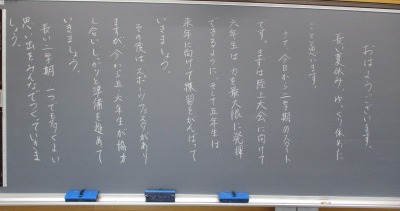 おはようございます。
長い夏休み、ゆっくり休めた
ことと思います。
さて今日から二学期のスタート
です。まずは陸上大会に向けて
六年生は力を最大限に発揮
できるように、そして五年生は
来年に向けて練習をがんばって
いきましょう。
その後はスポーツフェスタがあり
ますが、今から五、六年生が協力
し合い、しっかりと準備を進めて
いきましょう。
長い二学期、一つでも多くよい
思い出をみんなでつくっていきま
しょう。